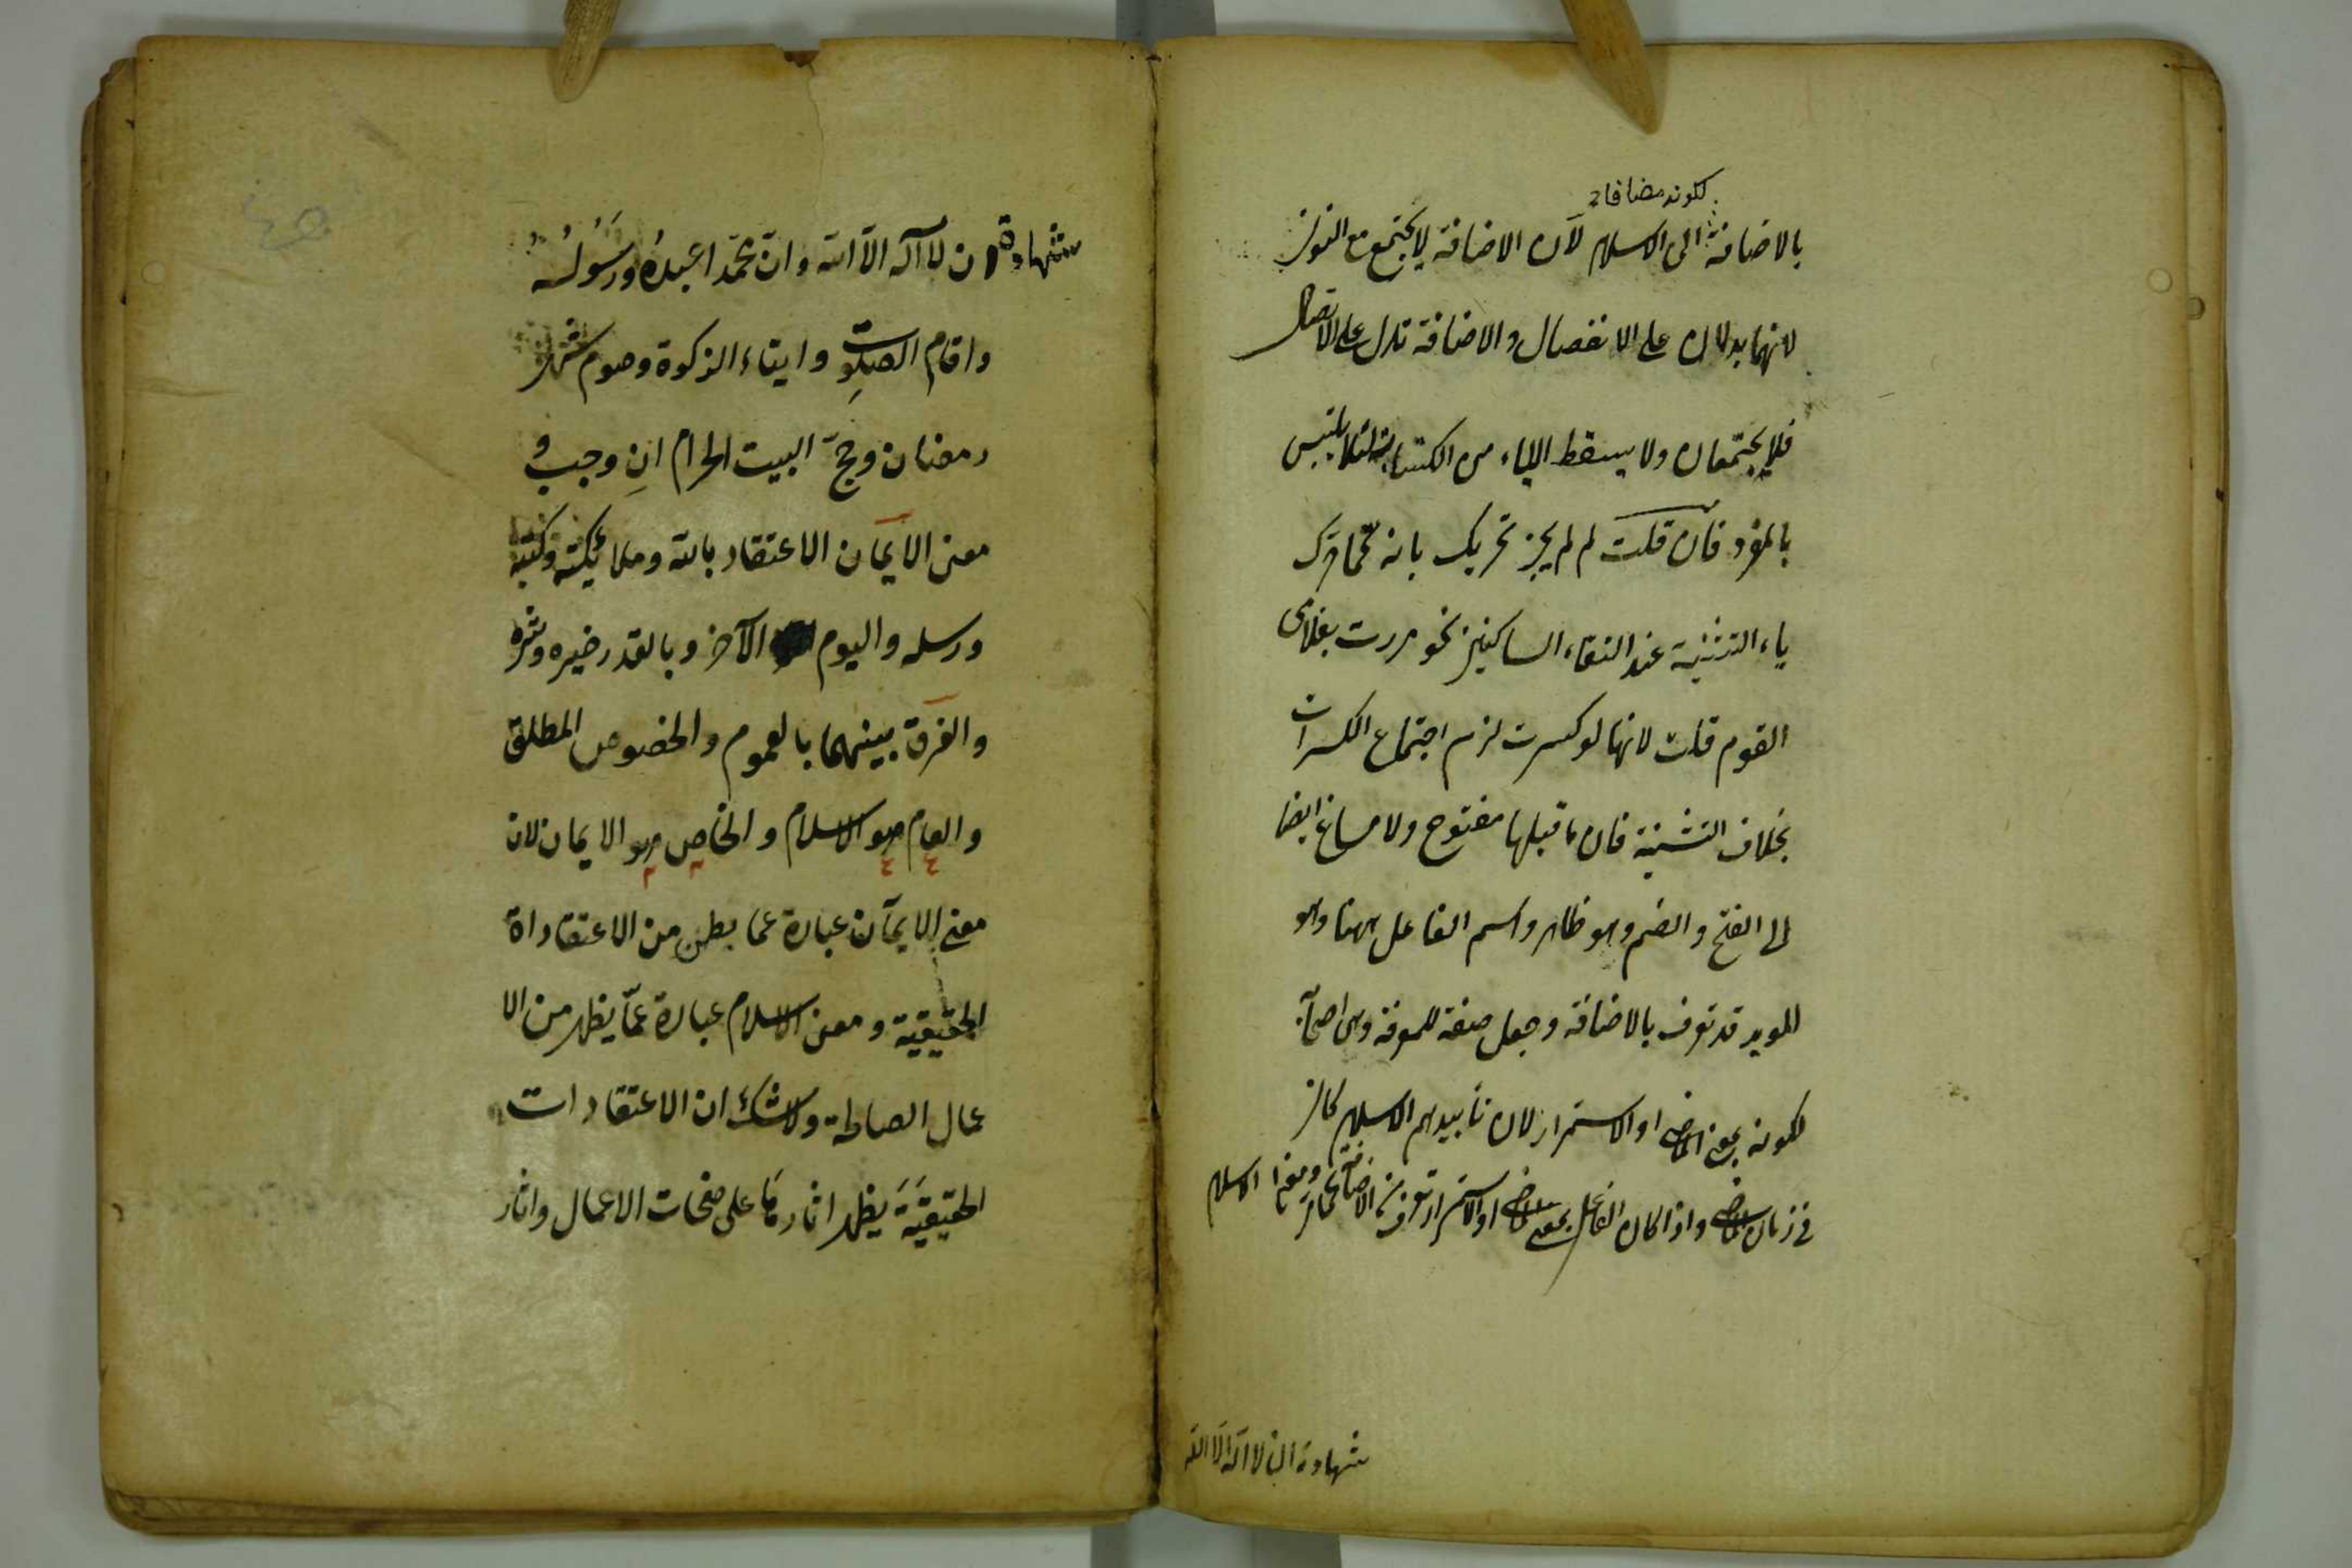 لكونه مضافا
بالاضافة الى الاسلام لان الاضافة لا يجتمع مع النون
لانهما يدلان على الانفصال والاضافة تدل على الاتصال
فلا يجتمعان ولا يسقط الياء من الكتابة لئلا يلتبس
بالمفرد فان قلت لم لم يجز تحريك يائه كما حرك
ياء التثنية عند التقاء الساكنين نحو مررت بغلامى
القوم قلت لانها لو كسرت لزم اجتماع الكسرات
بخلاف التثنية فان ما قبلها مفتوح ولا مساغ ايضا
الى الفتح والضم وهو ظاهر واسم الفاعل ههنا وهو
المويد قد تعرف بالاضافة وجعل صفة للمعرفة وهى اصحاب
لكونه بمعنى الماضى او الاستمرار لان تأييدهم الاسلام كان
فى زمان الماضى واذا كان الفاعل بمعنى الماضى او الاستمرار تعرف من الاضافة ومعنى الاسلام
شهادة ان لا اله الا الله
شهادة ان لا اله الا الله وان محمدا عبده ورسوله
واقام الصلوت وايتاء الزكوة وصوم شهر
رمضان وحج البيت الحرام ان وجب و
معنى الايمان الاعتقاد بالله وملائكته وكتبه
ورسله واليوم الآخر وبالقدر خيره وشره
والفرق بينهما بالعموم والخصوص المطلق
والعام هو الاسلام والخاص هو الايمان لان
معنى الايمان عبارة عما بطن من الاعتقاداة
الحقيقية ومعنى الاسلام عبارة عما يظهر من الا
عمال الصالحة ولا شك ان الاعتقادات
الحقيقية يظهر اثارها على صفحات الاعمال واثار